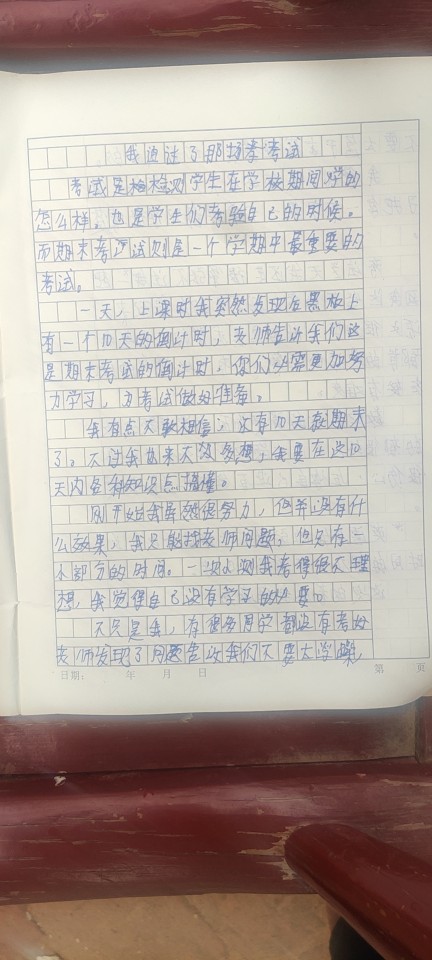 我通过了那场考试
考试是检测学生在学校期间学的
怎么样。也是学生们考验自己的时候。
而期末考试则是一个学期中最重要的
考试。
一天,上课时我突然发现后黑板上
有一个10天的倒计时,老师告诉我们这
是期末考试的倒计时,你们必需更加努
力学习,为考试做好准备。
我有点不敢相信,还有10天就期末
了。不过我也来不及多想,我要在这10
天内各种知识点搞懂。
刚开始我虽然很努力,但并没有什
么效果,我只能找老师问题。但只有一
小部分的时间。一次小测我考得很不理
想,我觉得自己没有学习的必要。
不只是我,有很多同学都没有考好
老师发现了问题告诉我们不要太
日期: 年 月 日 第 页